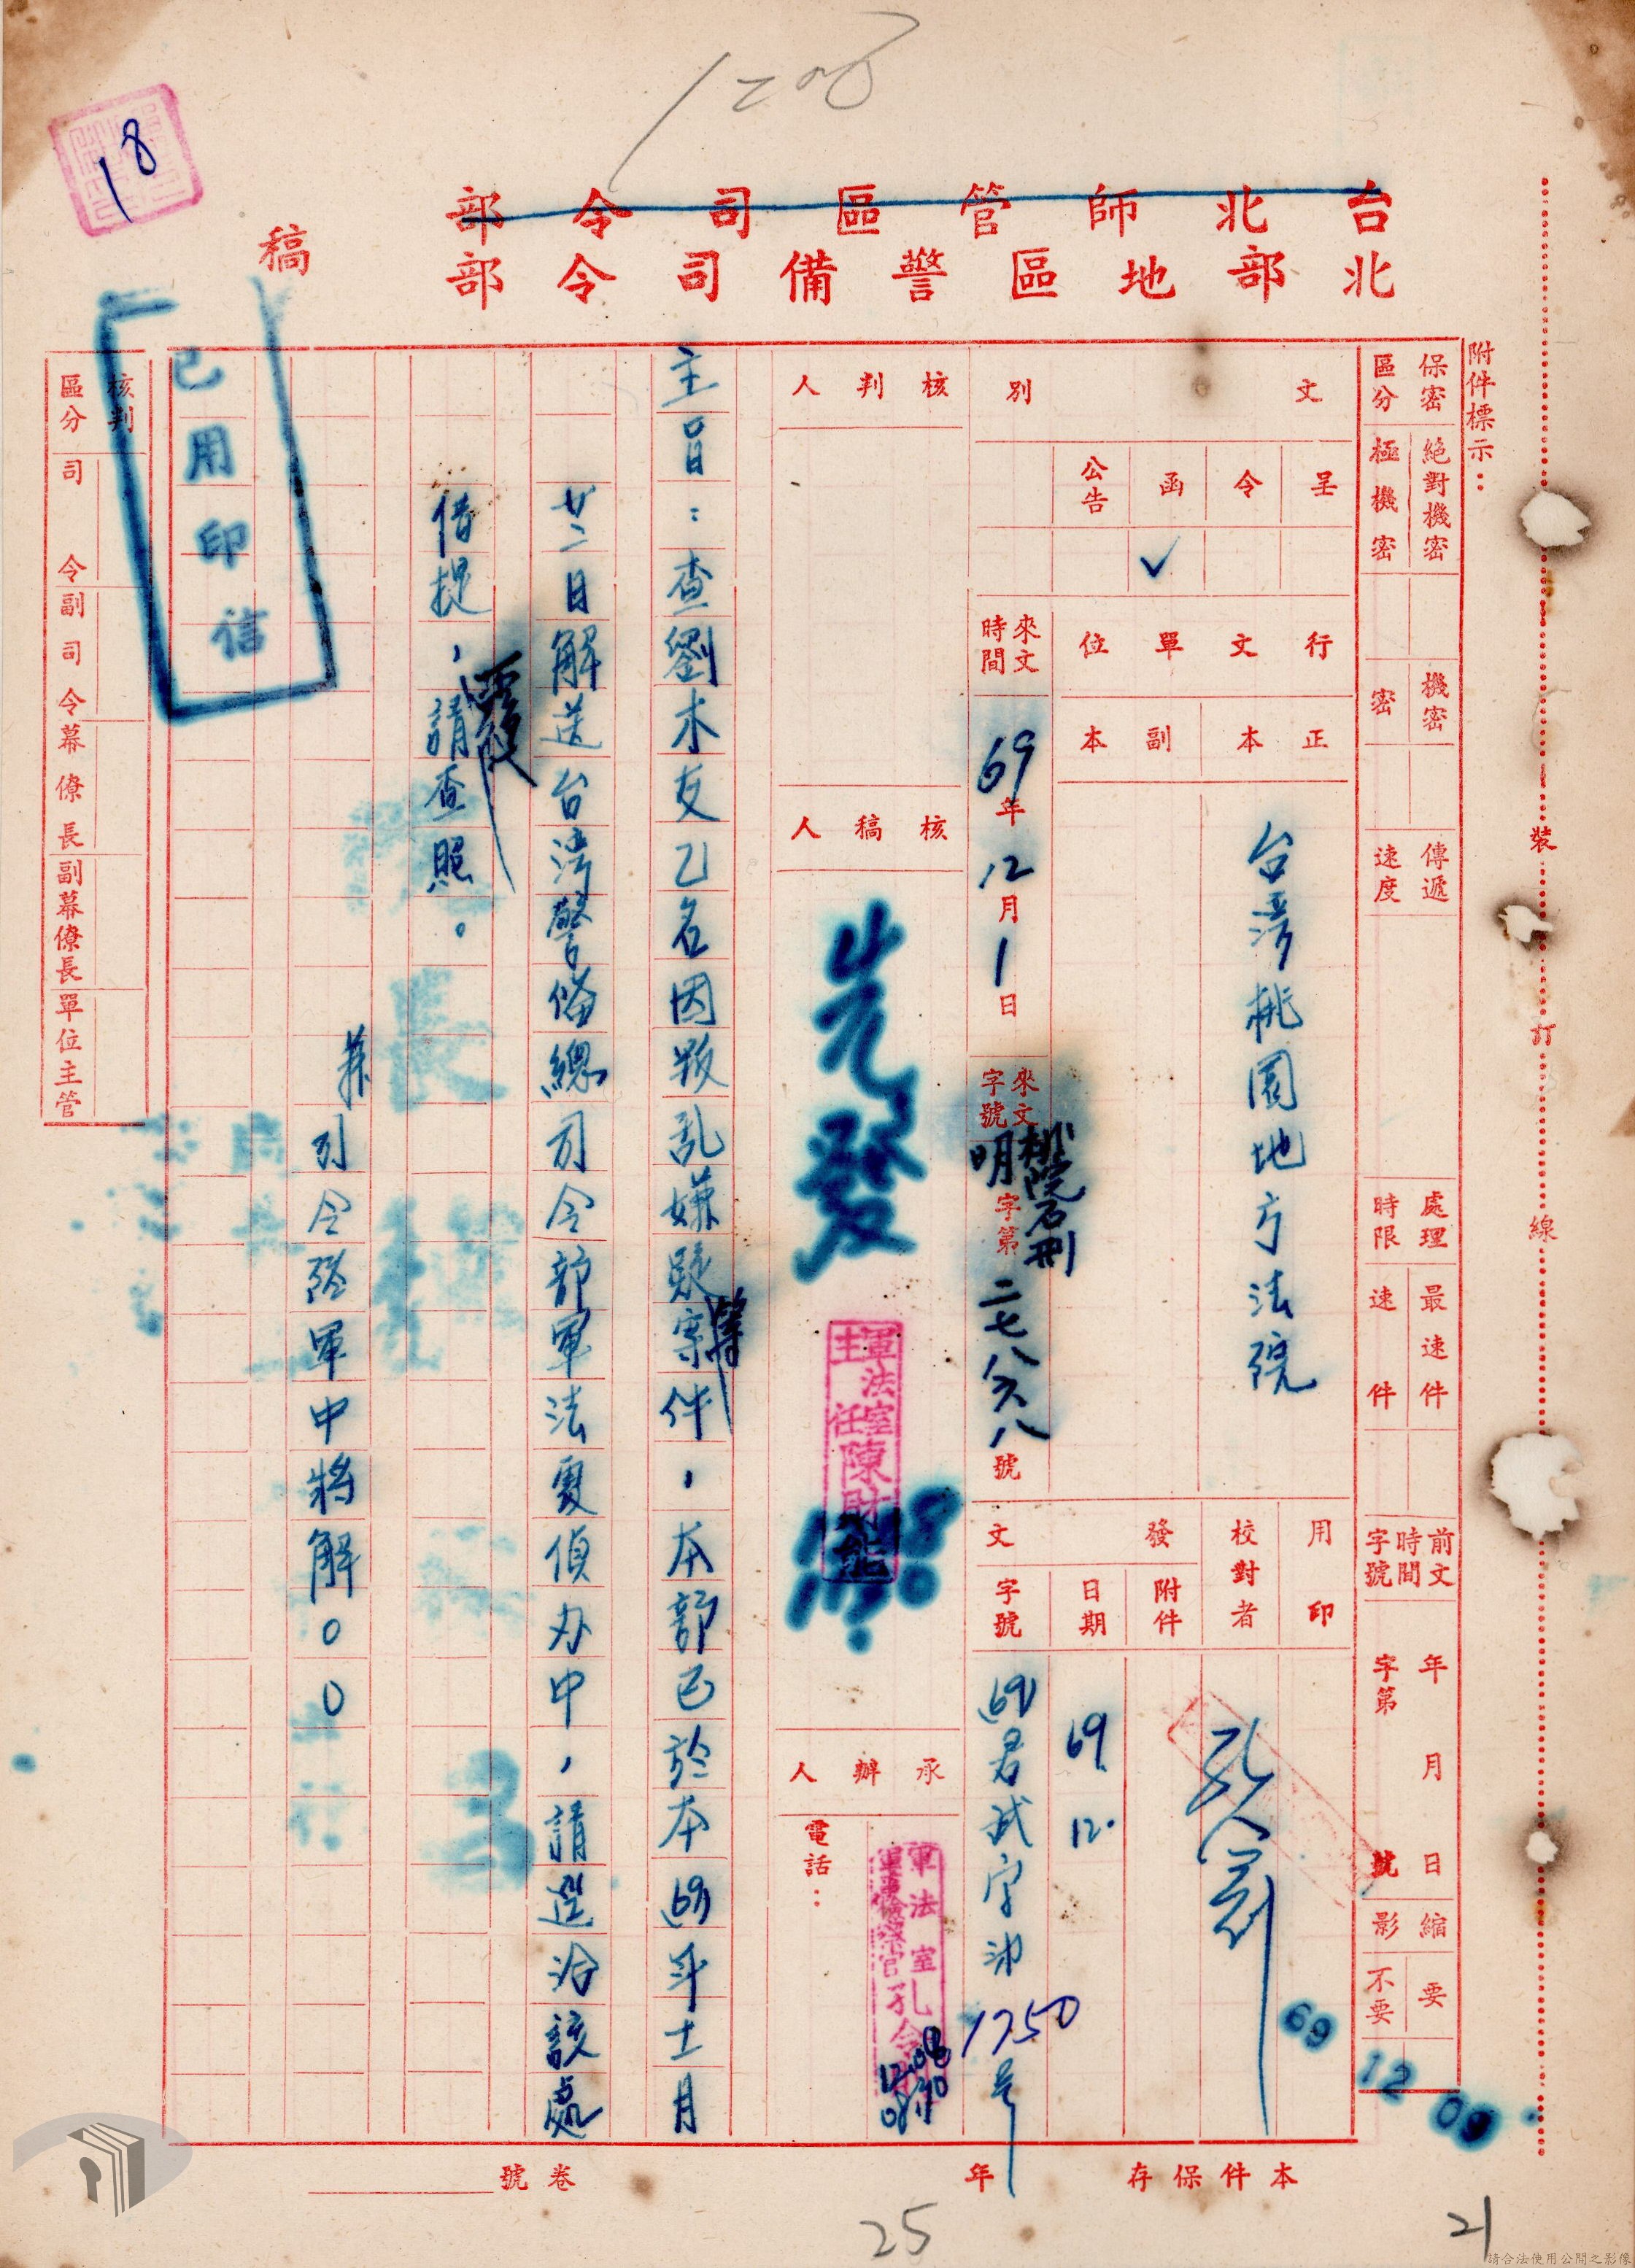 1208
18
台北師管區司令部
北部地區警備司令部
稿
附件標示：
保密區分
絕對機密
極機密
機密
密
傳遞速度
處理時限
最速件
速件
前文時間字號
年月日
字第號
縮影
要
不要
裝訂線
文別
呈
令
函
公告
✓
行文單位
正本
副本
台湾桃園地方法院
來文時間
69年12月1日
來文字號
桃院石刑明字第二七八六八號
用印
校對者
發文
附件
日期
字號
69 12.
(69)君武字第1750号
69 12 09
核判人
核稿人
先發
軍法室主任陳財能
承辦人
電話：
軍法室軍事檢察官孔令
主旨：查劉木友乙名因叛乱嫌疑等案件，本部已於本(69)年十一月
廿二日解送台湾警備總司令部軍法處偵办中，請逕洽該處
借提，請查照。
兼司令 張軍中將解〇〇
已用印信
核判區分
司令
副司令
幕僚長
副幕僚長
單位主管
本件保存年
卷號
25
21
請合法使用公開之影像